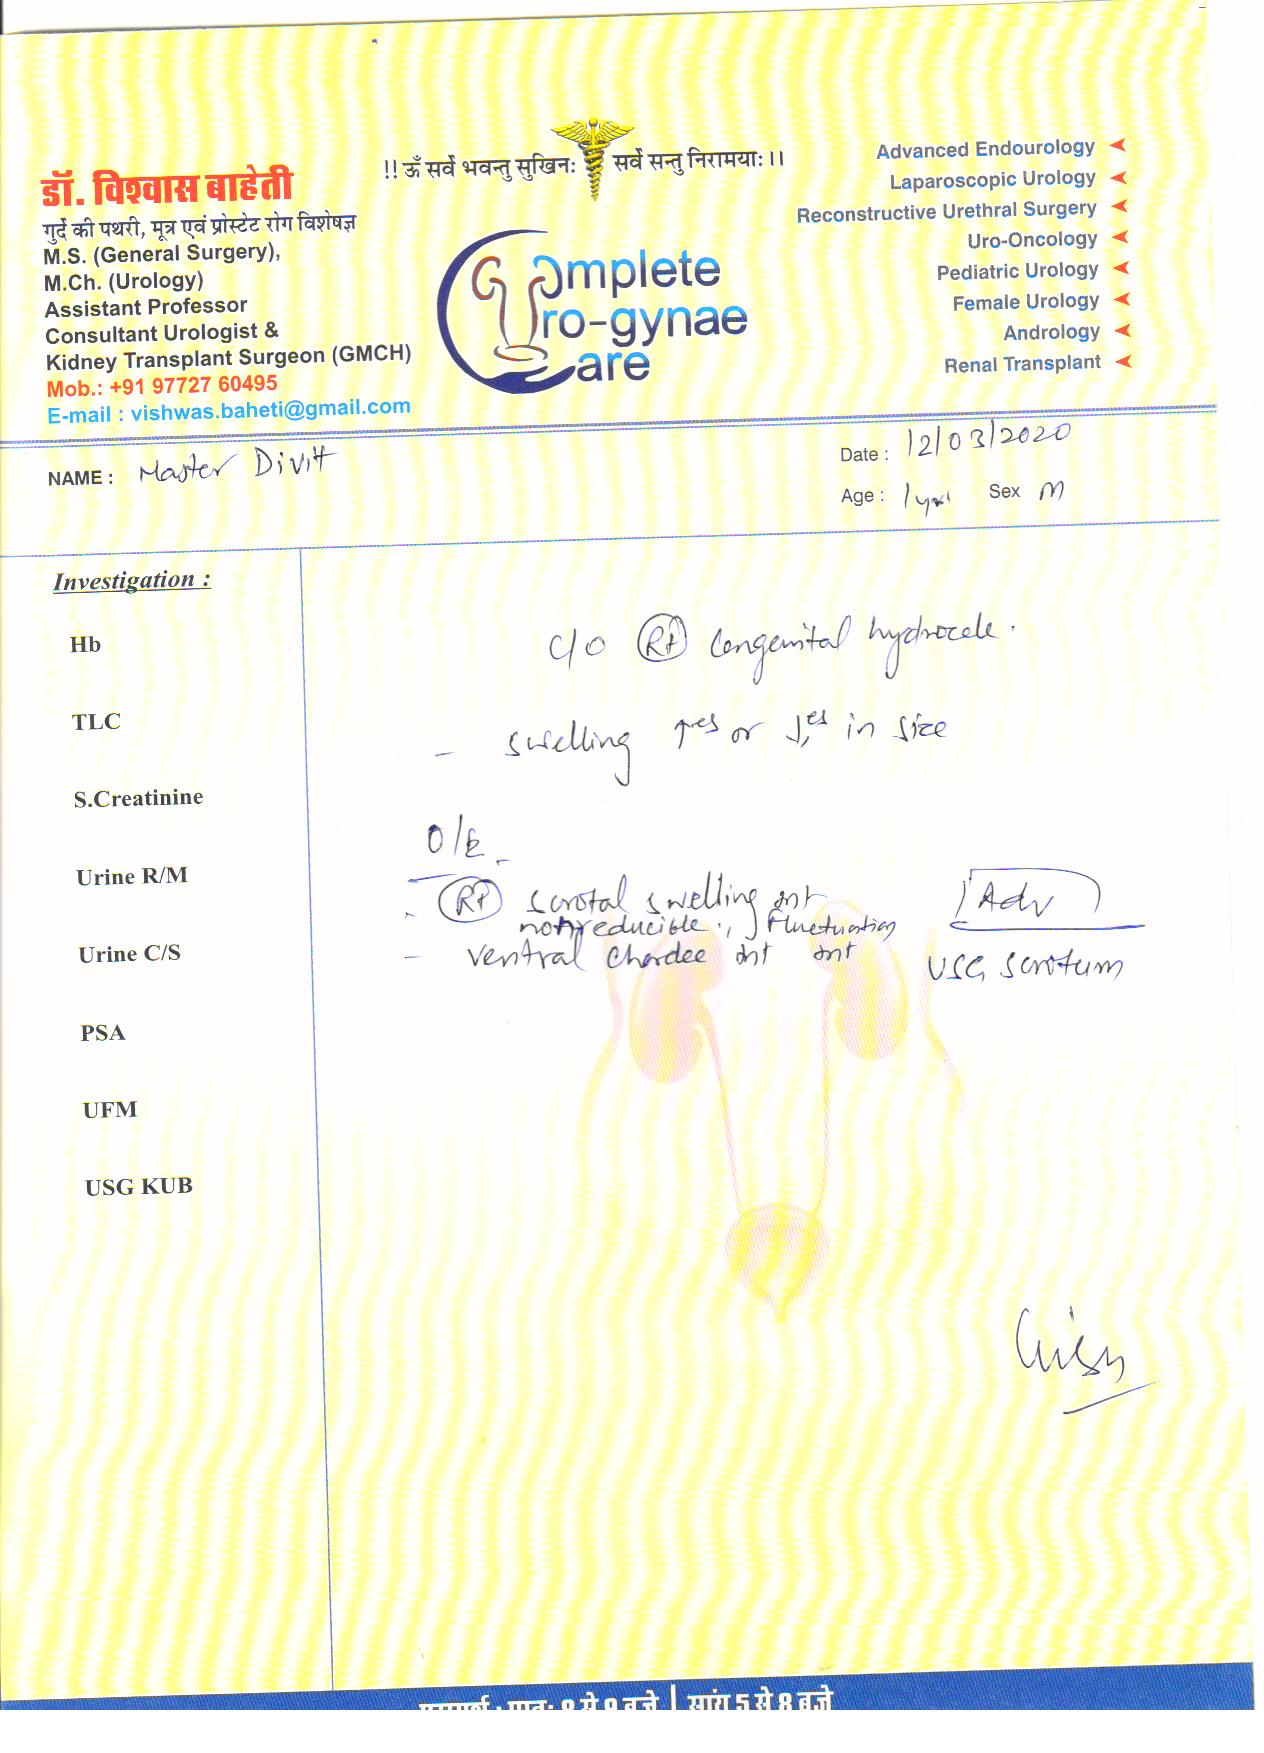 !! ॐ सर्वे भवन्तु सुखिनः सर्वे सन्तु निरामयाः ।।
डॉ. विश्वास बाहेती
गुर्दे की पथरी, मूत्र एवं प्रोस्टेट रोग विशेषज्ञ
M.S. (General Surgery),
M.Ch. (Urology)
Assistant Professor
Consultant Urologist &
Kidney Transplant Surgeon (GMCH)
Mob.: +91 97727 60495
E-mail : vishwas.baheti@gmail.com
Complete
Uro-gynae
Care
Advanced Endourology
Laparoscopic Urology
Reconstructive Urethral Surgery
Uro-Oncology
Pediatric Urology
Female Urology
Andrology
Renal Transplant
NAME : Master Divit
Date : 12/03/2020
Age : 1 yr Sex M
Investigation :
Hb
TLC
S.Creatinine
Urine R/M
Urine C/S
PSA
UFM
USG KUB
C/O Rt Congenital hydrocele.
- swelling ↑es or ↓es in size
O/E
- Rt scrotal swelling
nonreducible, fluctuation
- ventral chordee
Adv
USG scrotum
सांय 5 से 8 बजे